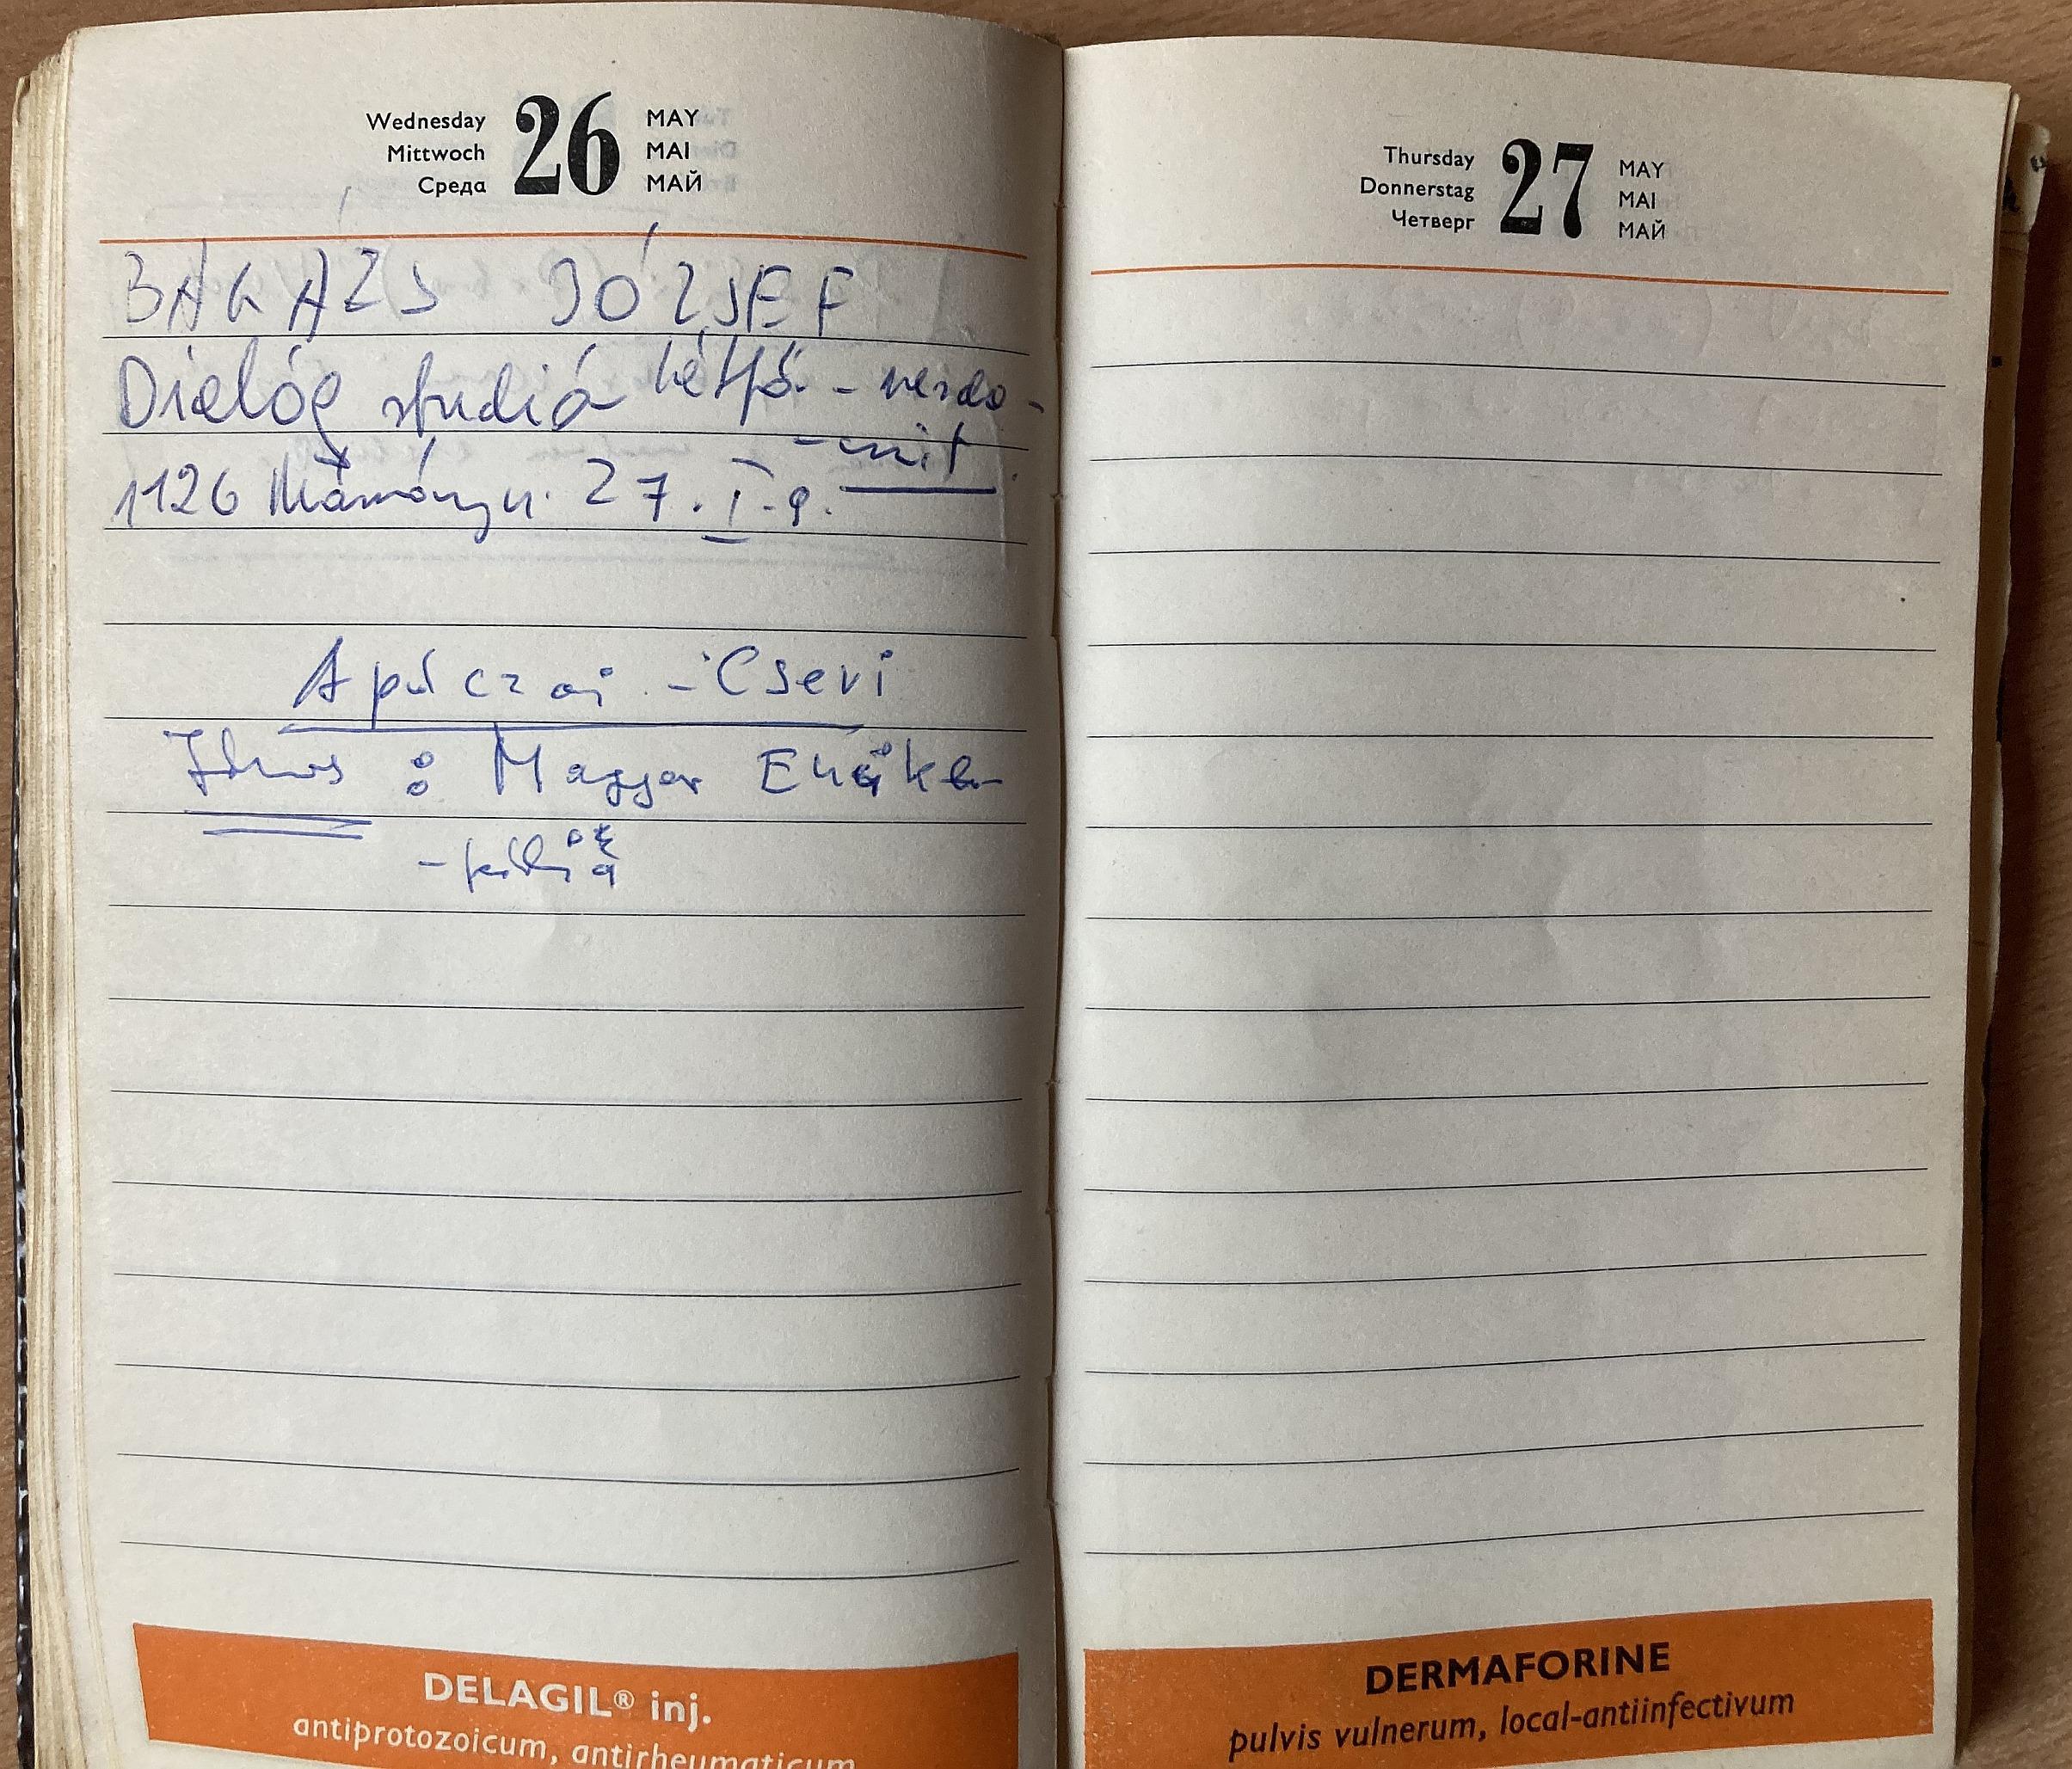 Wednesday 26 MAY
Mittwoch MAI
Среда МАЙ
BALÁZS JÓZSEF
Dialóg studió hétfő -
1126 Mártonyi u. 27. I. 9.
Apáczai - Cseri
János : Magyar Enciklo-
-pédiá
Thursday 27 MAY
Donnerstag MAI
Четверг МАЙ
DELAGIL® inj.
antiprotozoicum, antirheumaticum
DERMAFORINE
pulvis vulnerum, local-antiinfectivum